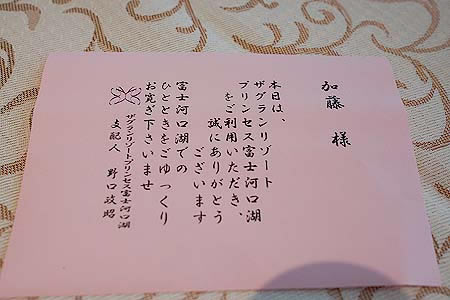 加藤 様
本日は、
ザグランリゾート
プリンセス富士河口湖
をご利用いただき、
誠にありがとう
ございます
富士河口湖での
ひとときをごゆっくり
お寛ぎ下さいませ
ザグランリゾートプリンセス富士河口湖
支配人 野口政昭